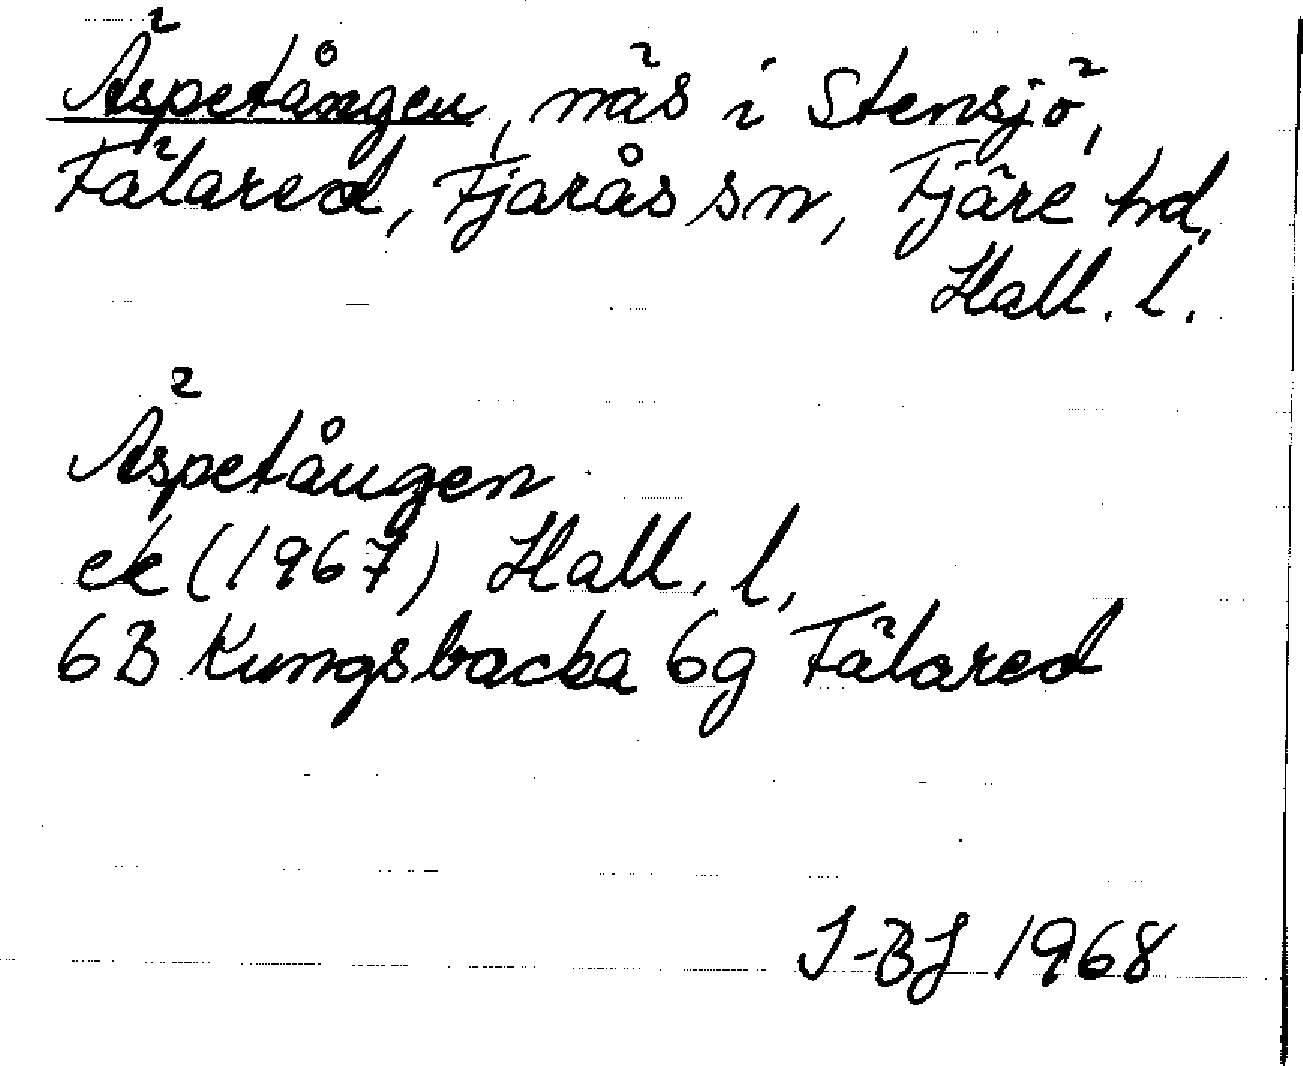 Äspetången, näs i Stensjö,
Fälared, Fjärås sn, Fjäre hd,
Hall. l.
Äspetången
ek (1967) Hall. l,
6B Kungsbacka 6g Fälared
I-BJ 1968